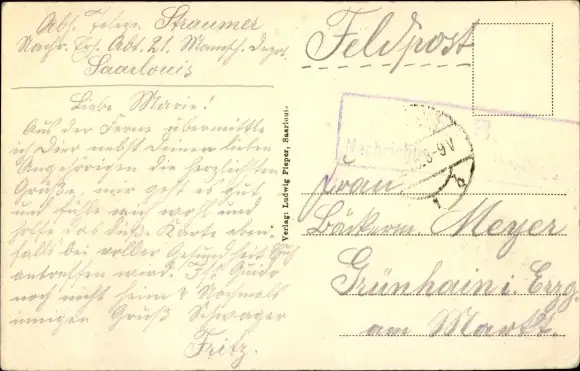 Abs. Telegr. Straumer
Nachr. Ers. Abt. 21. Mannsch. Depot
Saarlouis
Liebe Marie!
Aus der Ferne übermittle
ich Dir nebst Deinen lieben
Angehörigen die herzlichsten
Grüße, mir geht es gut
und fühle mich wohl und
hoffe das diese Karte eben-
falls bei voller Gesundheit Euch
antreffen wird. Ist Guido
noch nicht heim? Nochmals
innigen Gruß Schwager
Fritz.
Verlag: Ludwig Pieper, Saarlouis
Feldpost
Nachricht
8-9V
Frau
Bäckerm. Meyer
Grünhain i. Erzg.
am Markt.